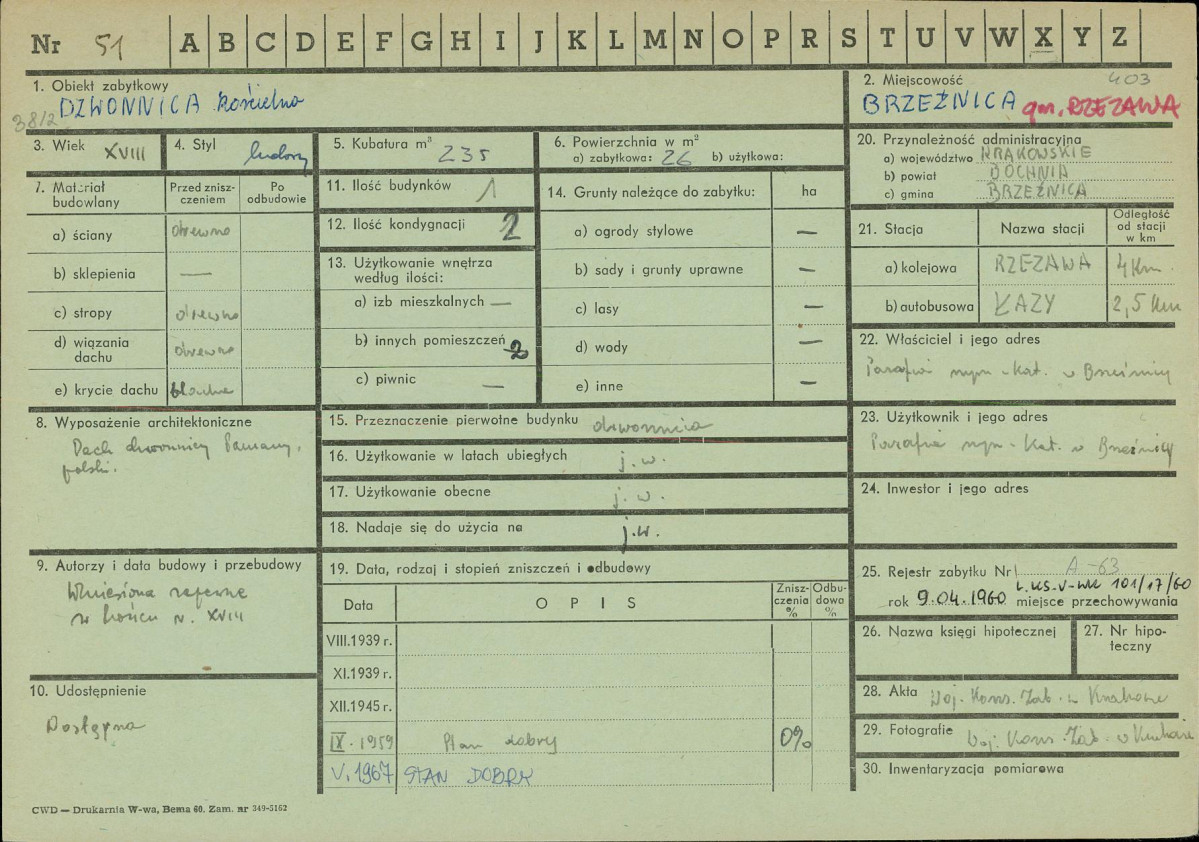 Nr 51 A B C D E F G H I J K L M N O P R S T U V W X Y Z
1. Obiekt zabytkowy
DZWONNICA kościelna
38/2
2. Miejscowość 403
BRZEŹNICA gm. RZEZAWA
3. Wiek XVIII
4. Styl ludowy
5. Kubatura m³ 235
6. Powierzchnia w m²
a) zabytkowa: 26 b) użytkowa:
20. Przynależność administracyjna
a) województwo KRAKOWSKIE
b) powiat BOCHNIA
c) gmina BRZEŹNICA
7. Materiał budowlany
Przed zniszczeniem
Po odbudowie
a) ściany drewno
b) sklepienia —
c) stropy drewno
d) wiązania dachu drewno
e) krycie dachu blacha
11. Ilość budynków 1
12. Ilość kondygnacji 2
13. Użytkowanie wnętrza
według ilości:
a) izb mieszkalnych —
b) innych pomieszczeń 2
c) piwnic —
14. Grunty należące do zabytku: ha
a) ogrody stylowe —
b) sady i grunty uprawne —
c) lasy —
d) wody —
e) inne —
21. Stacja Nazwa stacji Odległość od stacji w km
a) kolejowa RZEZAWA 4 Km
b) autobusowa ŁAZY 2,5 Km
22. Właściciel i jego adres
Parafia rzym-Kat. w Brzeźnicy
23. Użytkownik i jego adres
Parafia rzym-Kat. w Brzeźnicy
24. Inwestor i jego adres
8. Wyposażenie architektoniczne
Dach dzwonnicy łamany,
polski.
15. Przeznaczenie pierwotne budynku dzwonnica
16. Użytkowanie w latach ubiegłych j.w.
17. Użytkowanie obecne j.w.
18. Nadaje się do użycia na j.w.
9. Autorzy i data budowy i przebudowy
Wzniesiona zapewne
w końcu w. XVIII
10. Udostępnienie
Dostępna
19. Data, rodzaj i stopień zniszczeń i odbudowy
Data OPIS Zniszczenia % Odbudowa %
VIII.1939 r.
XI.1939 r.
XII.1945 r.
IX. 1959 Stan dobry 0%
V. 1967 STAN DOBRY
25. Rejestr zabytku Nr A-63
L.KS.V-WK 101/17/60
rok 9.04.1960 miejsce przechowywania
26. Nazwa księgi hipotecznej
27. Nr hipoteczny
28. Akta Woj. Kons. Zab. w Krakowie
29. Fotografie Woj. Kons. Zab. w Krakowie
30. Inwentaryzacja pomiarowa
CWD — Drukarnia W-wa, Bema 60. Zam. nr 349-5162